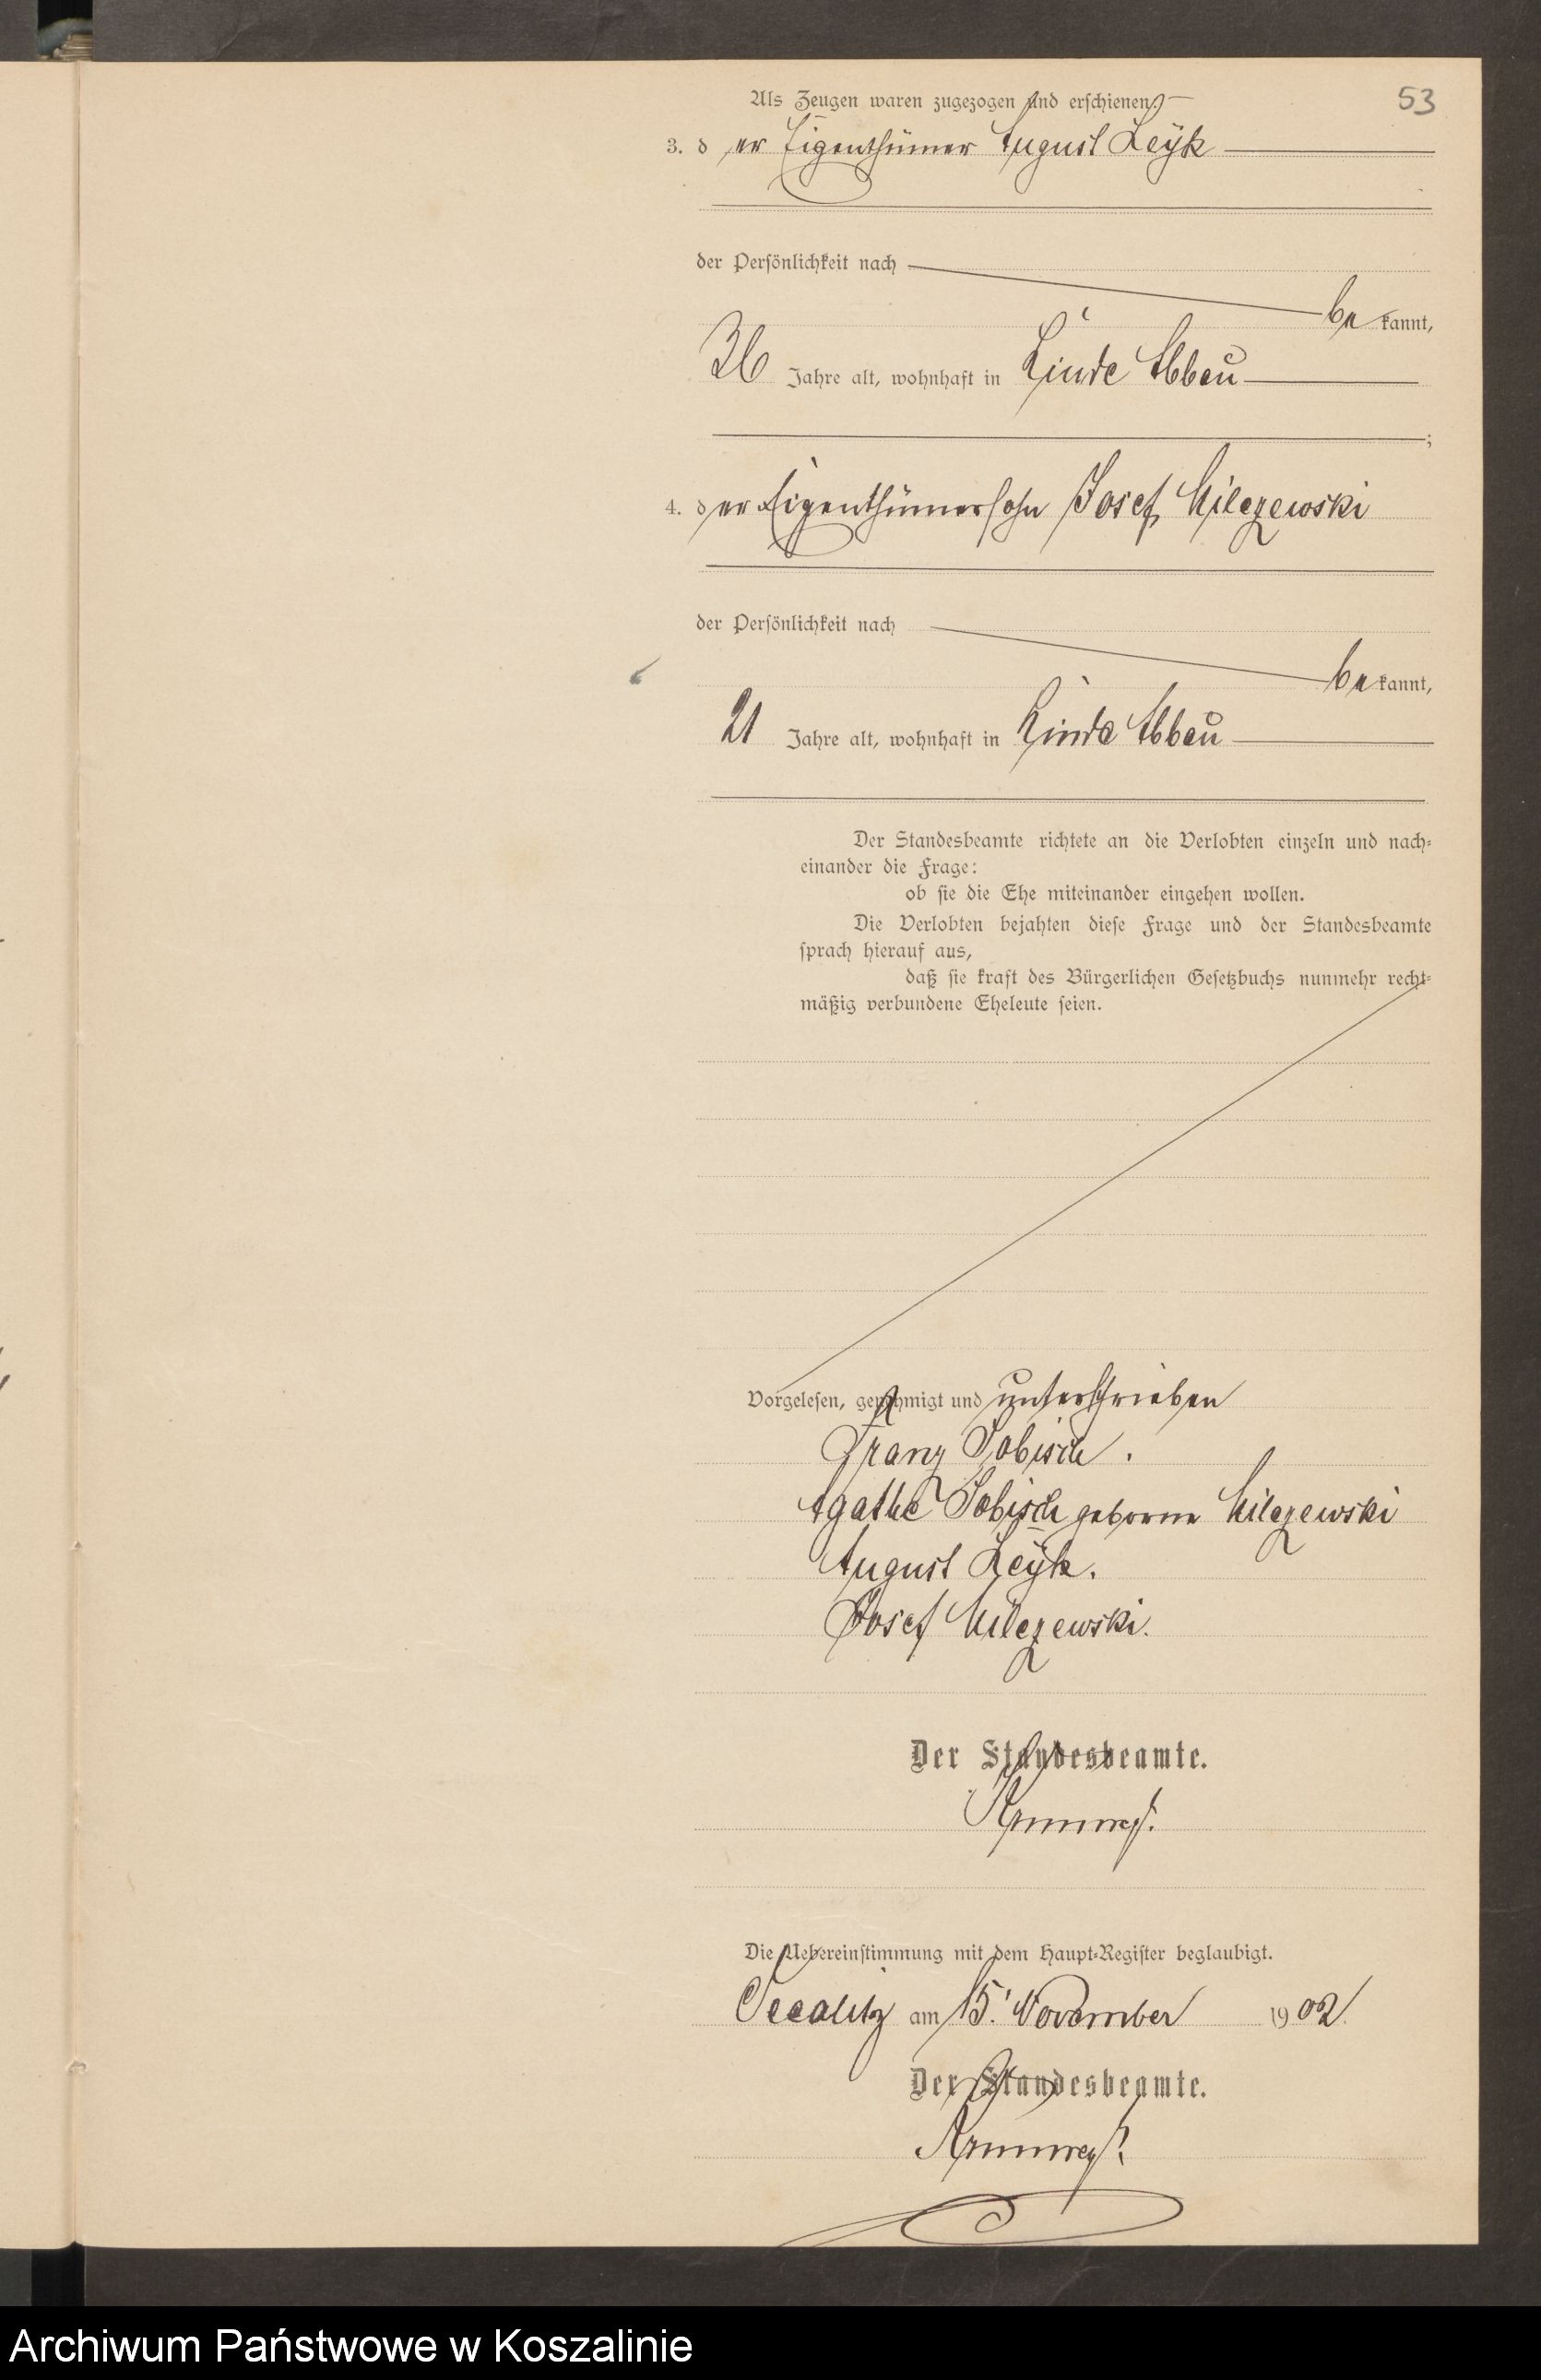 53
Als Zeugen waren zugezogen und erschienen:
3. der Eigenthümer August Leyk
der Persönlichkeit nach
bekannt,
36 Jahre alt, wohnhaft in Linde Abbau
;
4. der Eigenthümersohn Josef Milczewski
der Persönlichkeit nach
bekannt,
21 Jahre alt, wohnhaft in Linde Abbau
Der Standesbeamte richtete an die Verlobten einzeln und nach-
einander die Frage:
ob sie die Ehe miteinander eingehen wollen.
Die Verlobten bejahten diese Frage und der Standesbeamte
sprach hierauf aus,
daß sie kraft des Bürgerlichen Gesetzbuchs nunmehr recht-
mäßig verbundene Eheleute seien.
Vorgelesen, genehmigt und unterschrieben
Franz Jobisch.
Agathe Jobisch geborne Milczewski
August Leyk.
Josef Milczewski.
Der Standesbeamte.
Die Uebereinstimmung mit dem Haupt-Register beglaubigt.
am 15. November 1902.
Der Standesbeamte.
Archiwum Państwowe w Koszalinie